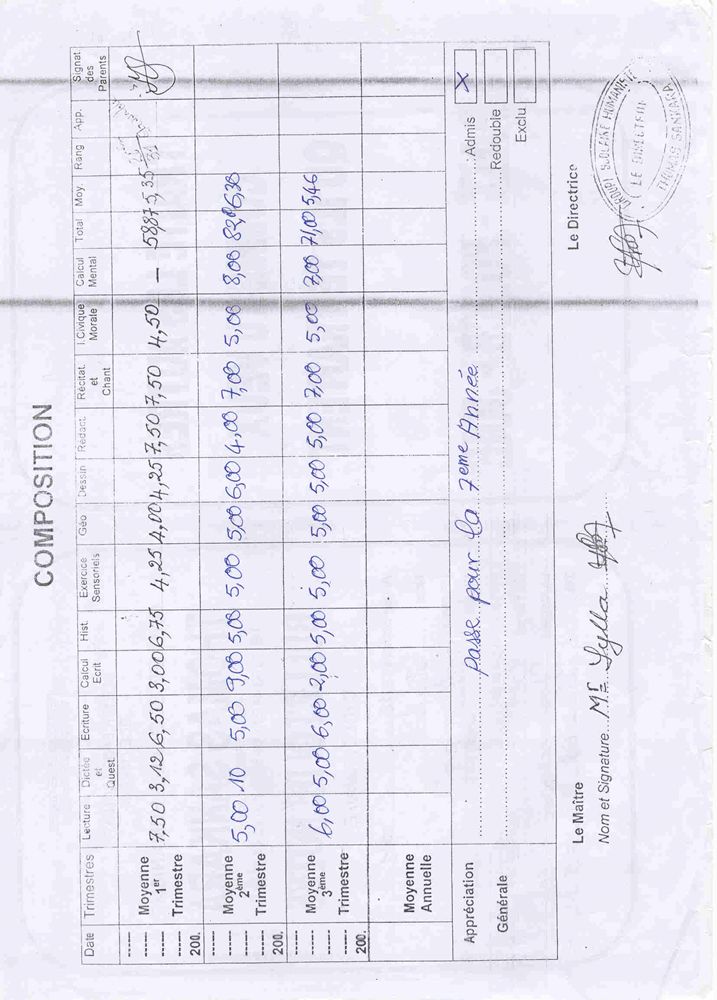 COMPOSITION
Date Trimestres Lecture Dictée et Quest. Ecriture Calcul Ecrit Hist. Exercice Sensoriels Géo Dessin Rédact. Récitat. et Chant I Civique Morale Calcul Mental Total Moy. Rang App. Signat des Parents
200. Moyenne 1er Trimestre 7,50 3,12 6,50 3,00 6,75 4,25 4,00 4,25 7,50 7,50 4,50 — 58,87 5,35
200. Moyenne 2ème Trimestre 5,00 10 5,00 9,00 5,00 5,00 5,00 6,00 4,00 7,00 5,00 8,00 6,30
200. Moyenne 3ème Trimestre 6,00 5,00 6,00 2,00 5,00 5,00 5,00 5,00 5,00 7,00 5,00 7,00 71,00 5,46
Moyenne Annuelle
Appréciation Générale
Passe pour la 7eme Année
Admis X
Redouble
Exclu
Le Maître
Nom et Signature Mr Sylla
Le Directrice
GROUPE SCOLAIRE HUMANISTE
LE DIRECTEUR
THOMAS SANKARA